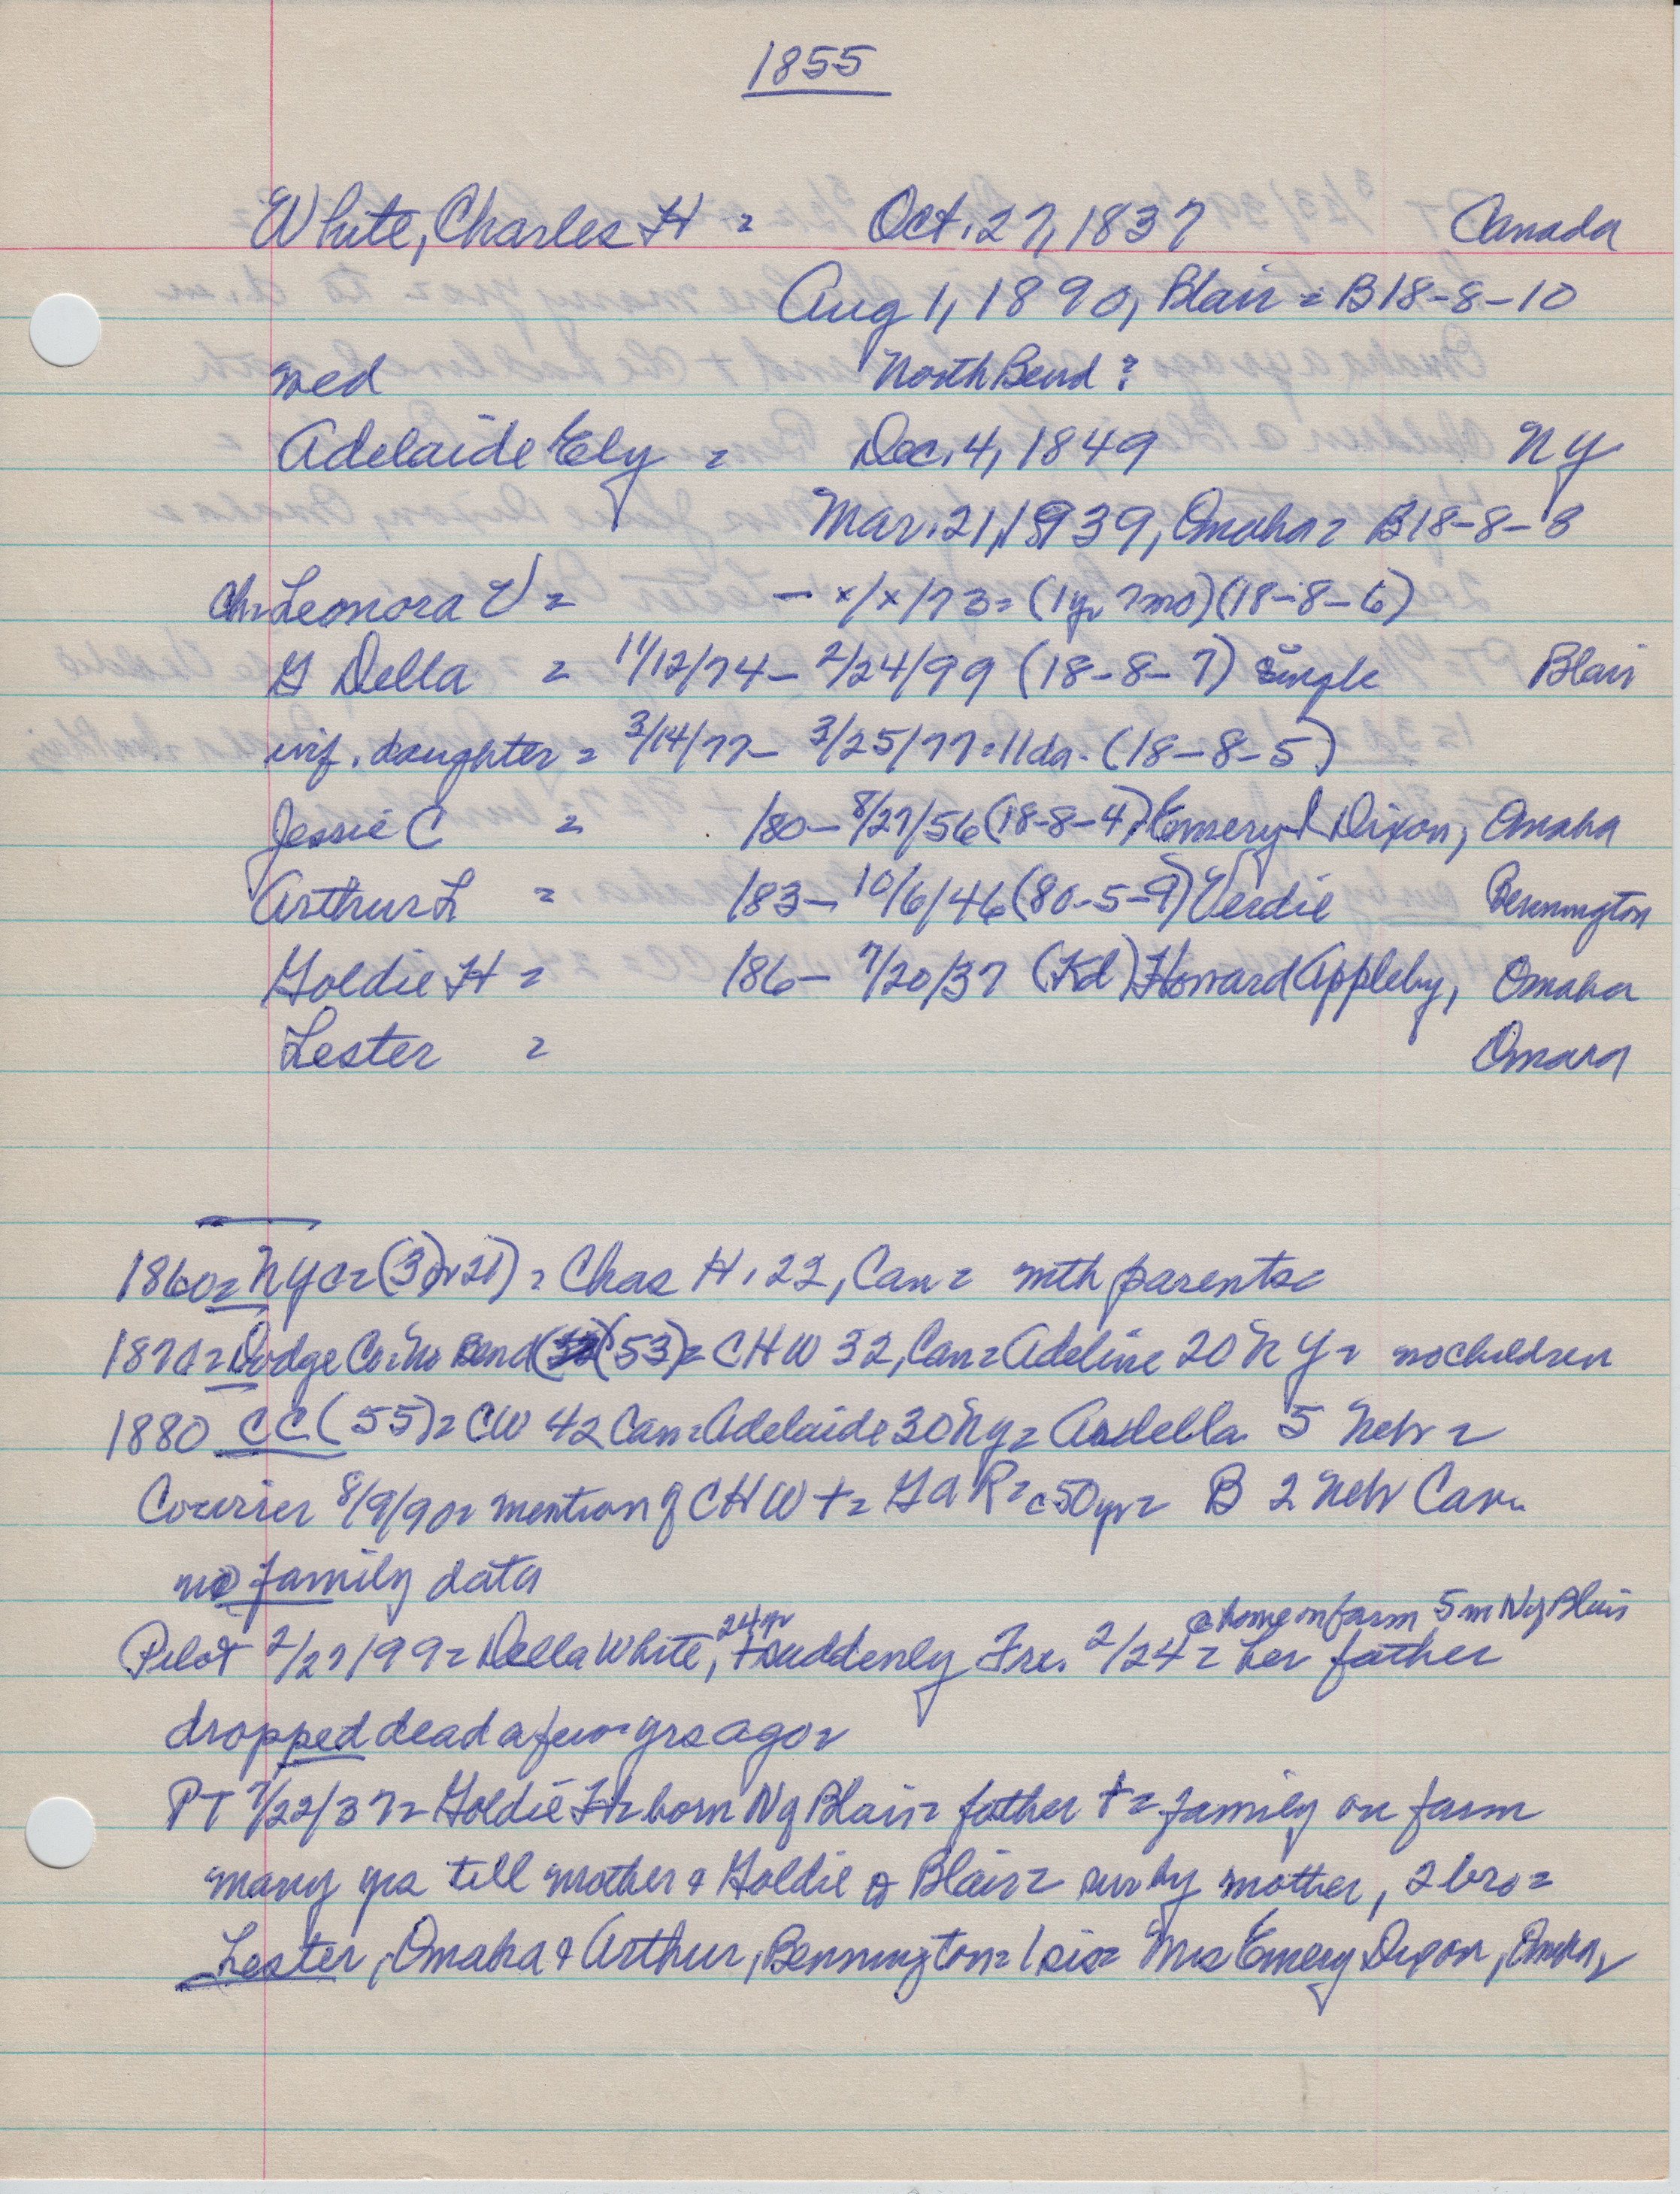 1855
White, Charles H = Oct. 27, 1837 Canada
Aug 1, 1890, Blair = B18-8-10
wed North Bend?
Adelaide Ely = Dec. 4, 1849 NY
Mar. 21, 1939, Omaha = B18-8-8
Ch= Leonora V = — x/x/73 = (1yr 7mo) (18-8-6)
G Della = 11/12/74 — 2/24/99 (18-8-7) single Blair
inf. daughter = 3/14/77 — 3/25/77 = 11da. (18-8-5)
Jessie C = /80 — 8/27/56 (18-8-4) Emery I Dixon, Omaha
Arthur L = /83 — 10/6/46 (80-5-9) Verdie Bennington
Goldie H = /86 — 7/20/37 (Kd) Howard Appleby, Omaha
Lester = Omaha
1860 = NYC = = Chas H. 22, Can = with parents =
1870 = Dodge Co = No Bend (53) = CHW 32, Can = Adeline 20 NY = no children
1880 CC (55) = CW 42 Can = Adelaide 30 Ny = Ardella 5 Nebr =
Courier 8/9/90 = mention of CHW + = GAR = c50yr = B 2 Nebr Cav.
no family data
@ home on farm 5m N of Blair
Pilot 2/27/99 = Della White, 24yr + suddenly Fri. 2/24 = her father
dropped dead a few yrs ago =
PT 7/22/37 = Goldie H = born N of Blair = father + = family on farm
many yrs till mother & Goldie Blair = sur by mother, 2 bro =
Lester, Omaha & Arthur, Bennington = 1 sis = Mrs Emery Dixon, Omaha,